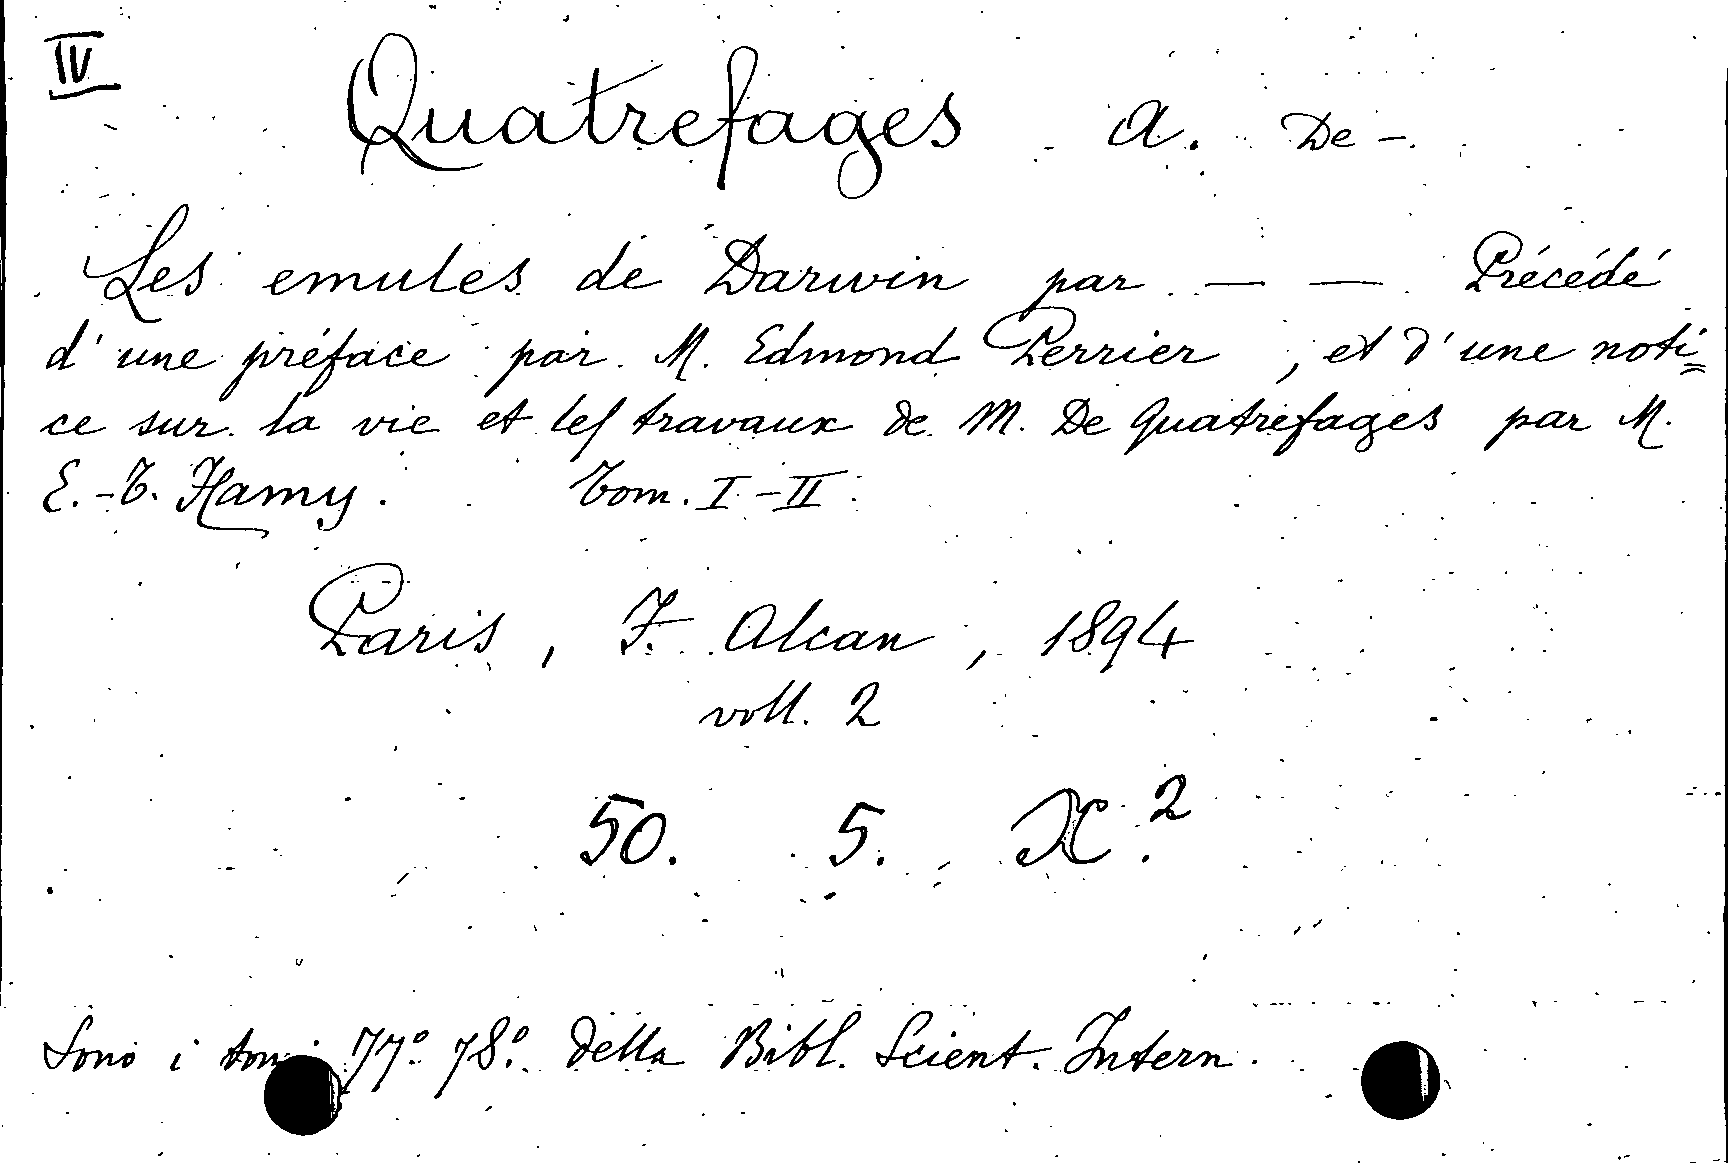 IV
Quatrefages A. De -
Les emules de Darwin par — — Précédé
d'une préface par M. Edmond Perrier, et d'une noti=
ce sur la vie et les travaux de M. De Quatrefages par M.
E.-T. Hamy. Tom. I-II
Paris, F. Alcan, 1894
voll. 2
50. 5. X.²
Sono i tomi 77° 78° della Bibl. Scient. Intern.